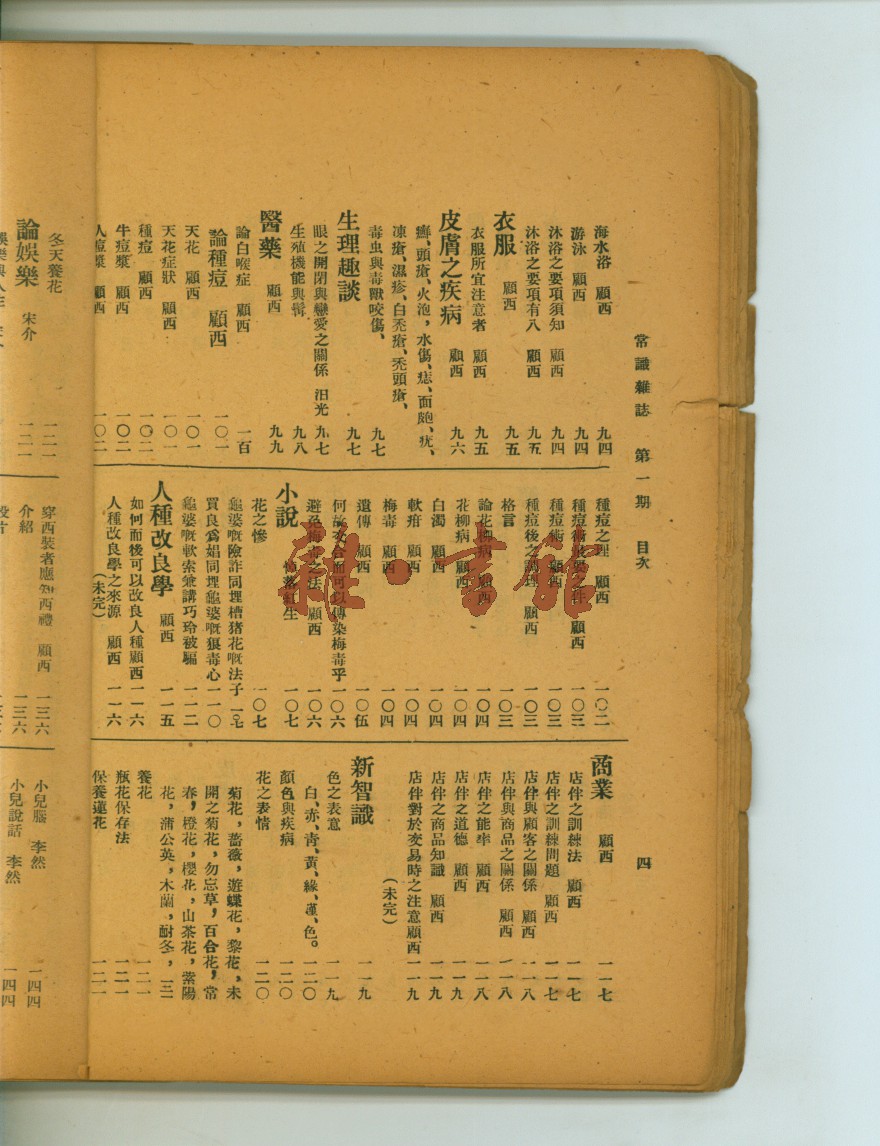 常識雜誌 第一期 目次
四
海水浴 顧西 九四
游泳 顧西 九四
沐浴之要項須知 顧西 九四
沐浴之要項有八 顧西 九五
衣服 顧西 九五
衣服所宜注意者 顧西 九五
皮膚之疾病 顧西 九六
癬、頭瘡、火泡，水傷、痣、面皰、疣、
凍瘡、濕疹、白禿瘡、禿頭瘡、
毒虫與毒獸咬傷、 九七
生理趣談 九七
眼之開閉與戀愛之關係 汨光 九七
生殖機能與髯 九八
醫藥 顧西 九九
論白喉症 顧西 一百
論種痘 顧西 一〇一
天花 顧西 一〇一
天花症狀 顧西 一〇一
種痘 顧西 一〇二
牛痘漿 顧西 一〇二
人痘漿 顧西 一〇二
種痘之理 顧西 一〇二
種痘術 顧西 一〇三
種痘後之調理 顧西 一〇三
格言 一〇三
論花柳病 顧西 一〇四
花柳病 顧西 一〇四
白濁 顧西 一〇四
軟疳 顧西 一〇四
梅毒 顧西 一〇四
遺傳 顧西 一〇伍
何故交合而可以傳染梅毒乎 一〇六
避免梅毒之法 顧西 一〇六
小說 落紅生 一〇七
花之慘 一〇七
龜婆嘅險詐同埋槽猪花嘅法子 一〇七
買良爲娼同埋龜婆嘅狠毒心 一一〇
龜婆嘅軟索兼講巧玲被騙 一一二
人種改良學 顧西 一一五
如何而後可以改良人種 顧西 一一六
人種改良學之來源 顧西 一一六
（未完）
商業 顧西 一一七
店伴之訓練法 顧西 一一七
店伴之訓練問題 顧西 一一七
店伴與顧客之關係 顧西 一一八
店伴與商品之關係 顧西 一一八
店伴之能率 顧西 一一八
店伴之道德 顧西 一一九
店伴之商品知識 顧西 一一九
店伴對於交易時之注意 顧西 一一九
（未完）
新智識 一一九
色之表意 一一九
白、赤、青、黃、綠、堇、色。 一二〇
顏色與疾病 一二〇
花之表情 一二〇
菊花，薔薇，遊蝶花，黎花，未
開之菊花，勿忘草，百合花，常
春，橙花，櫻花，山茶花，紫陽
花，蒲公英，木蘭，耐冬， 一二一
養花 一二一
瓶花保存法 一二一
保養蓮花 一二一
冬天養花 一二一
論娛樂 宋介 一二一
穿西裝者應知西禮 顧西 一三六
介紹 一三六
小兒腦 李然 一四四
小兒說話 李然 一四四
雜·書館